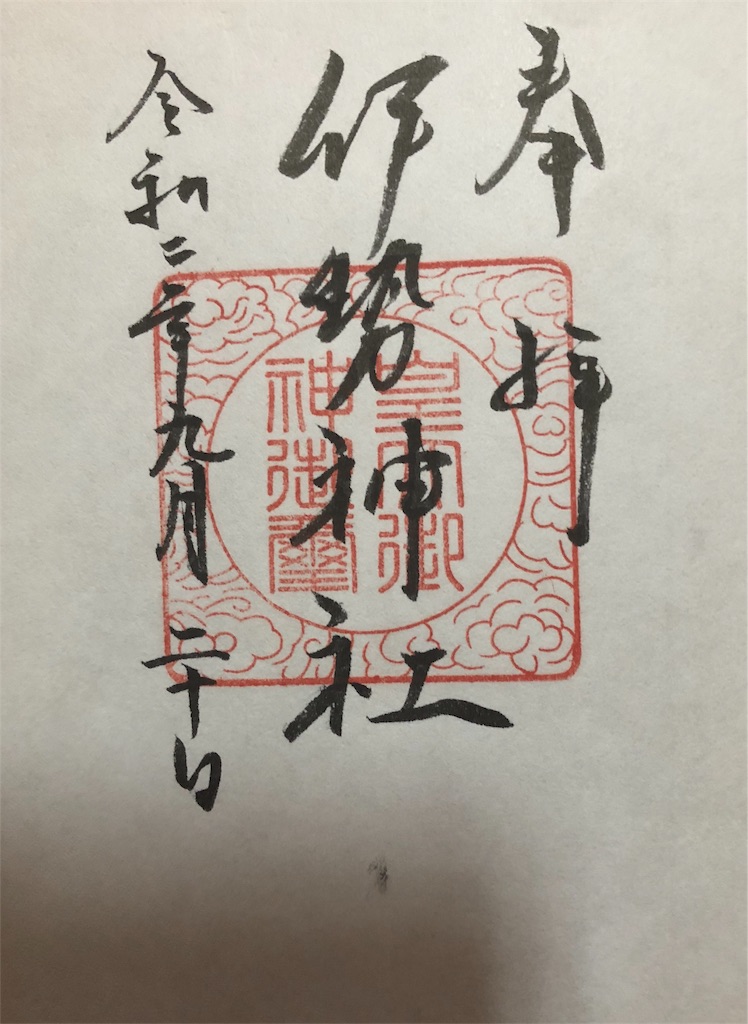 奉拝
伊勢神社
令和二年九月二十日
皇 御
神御璽